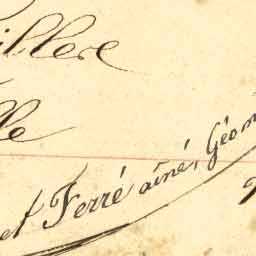 illere
lle
et Ferré aîné, Géom